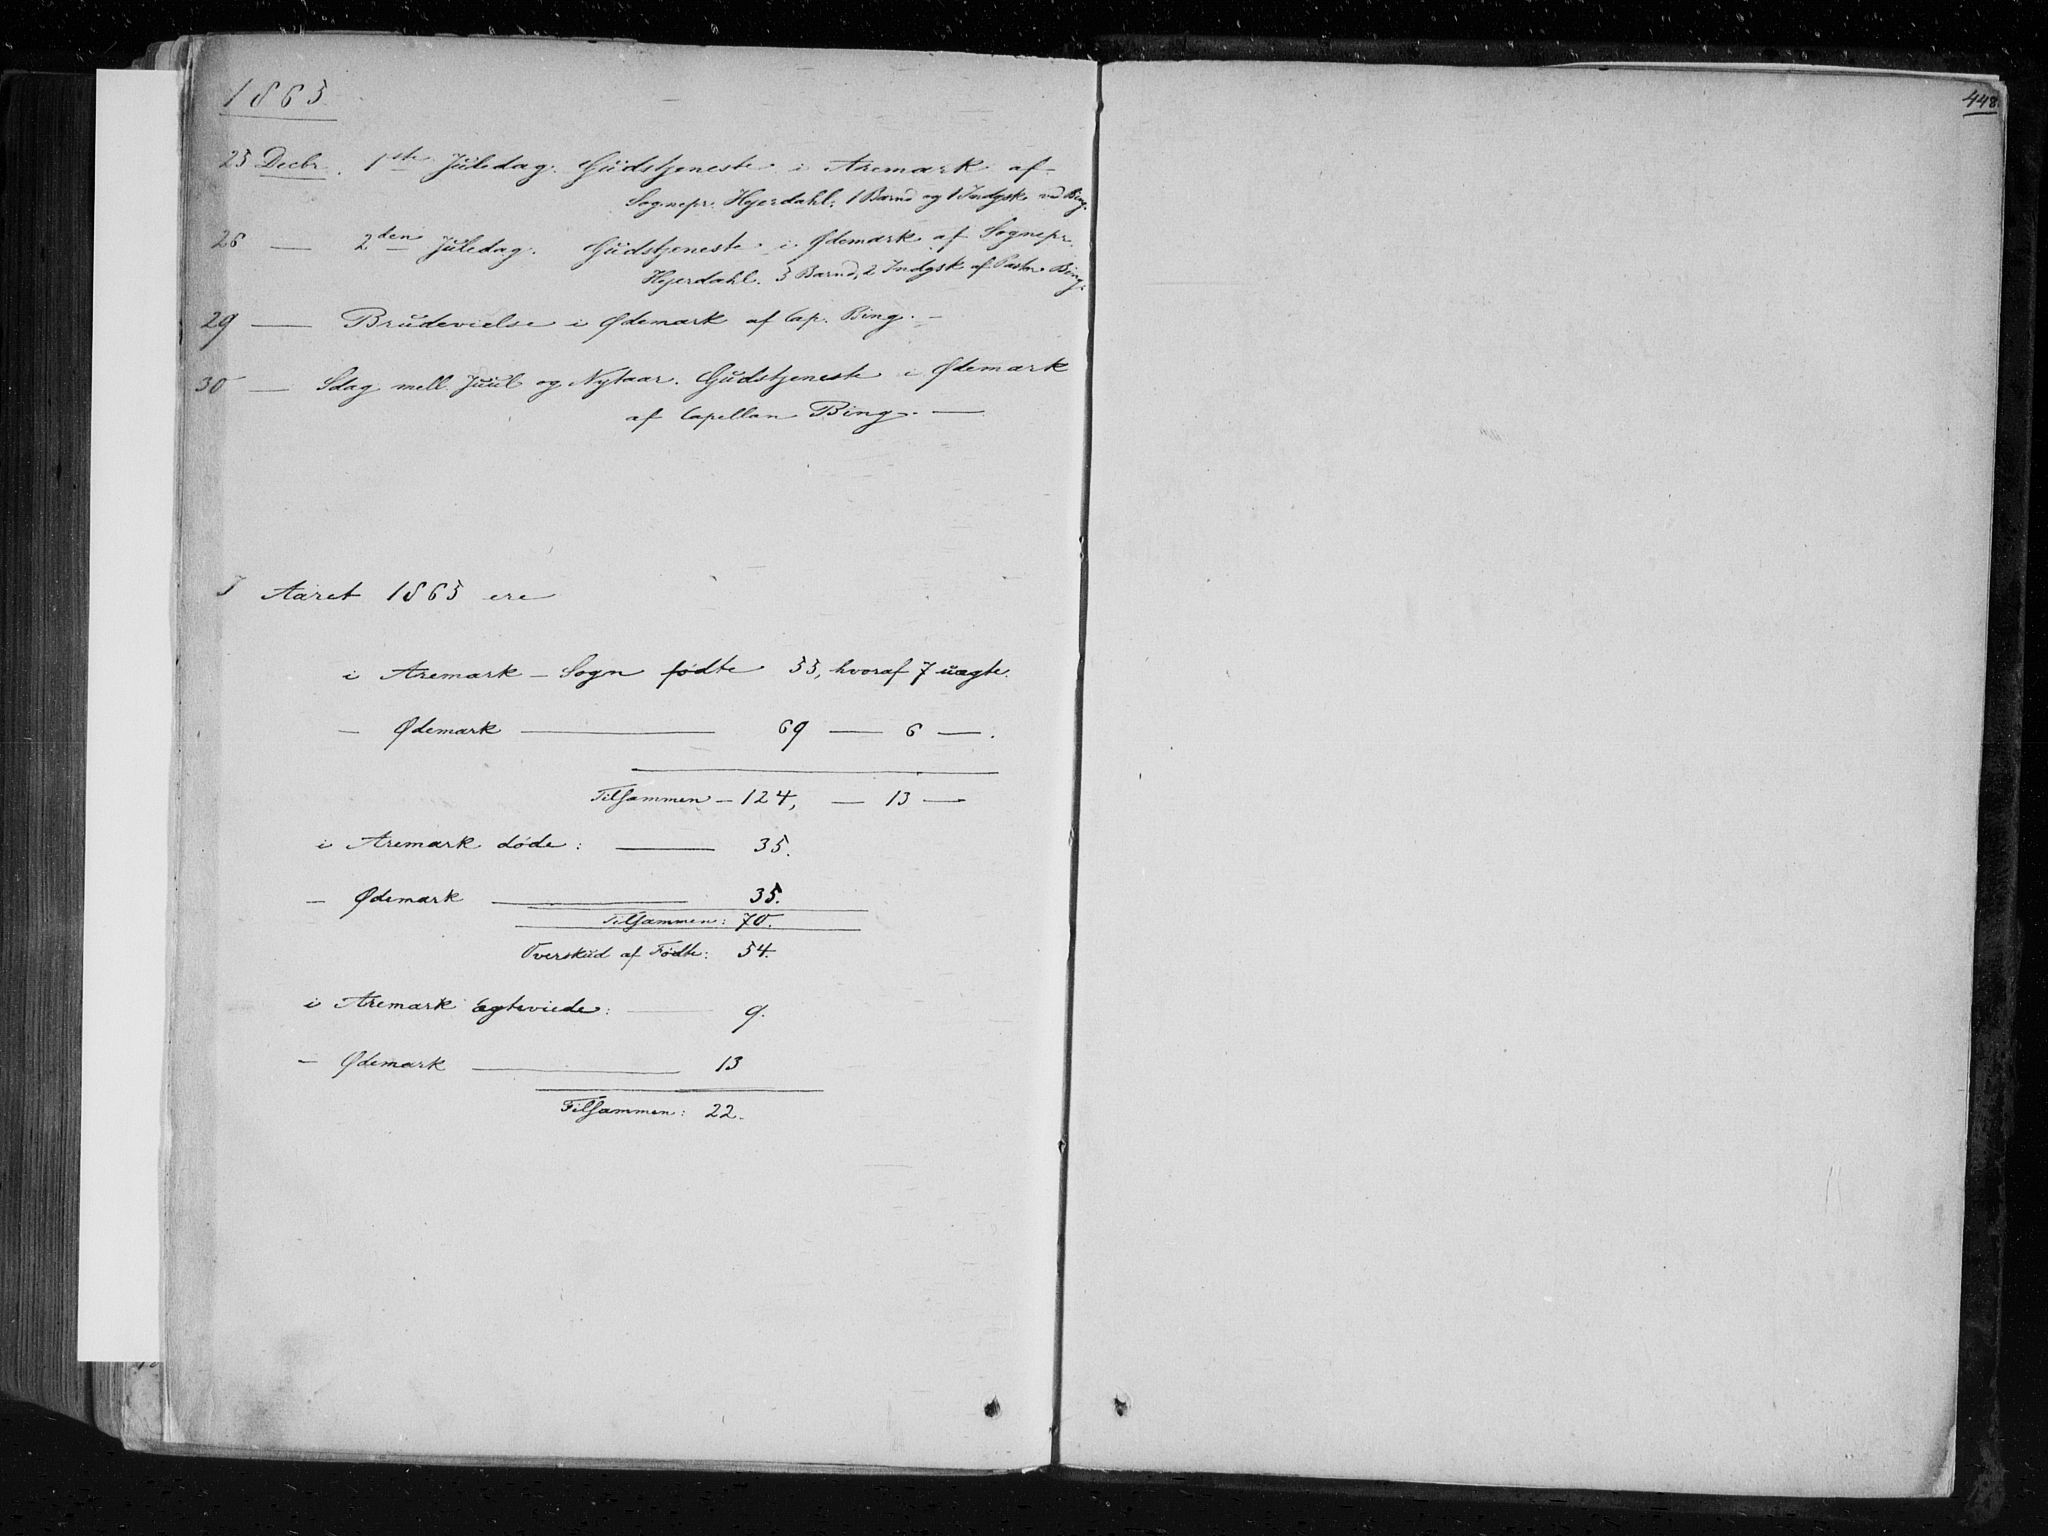 1865
25 Decbr. 1ste Juledag. Gudstjeneste i Aremark af
Sognepr. Hjerdahl; 1 Barned og 1 Indgsk. ved Bing.
26 — 2den Juledag. Gudstjeneste i Ødemark af Sognepr.
Hjerdahl. 5 Barned, 2 Indgsk af Pastor Bing.
29 — Brudevielse i Ødemark af Cap. Bing. —
30 — Sdag mell. Juul og Nytaar. Gudstjeneste i Ødemark
af Capellan Bing. —
I Aaret 1865 ere
i Aremark – Sogn fødte 55, hvoraf 7 uægte.
— Ødemark — 69 — 6 —.
Tilsammen – 124, — 13 —
i Aremark døde: — 35.
— Ødemark — 35.
Tilsammen: 70.
Overskud af Fødte: 54.
i Aremark ægteviede: — 9.
— Ødemark — 13
Tilsammen: 22.
448.